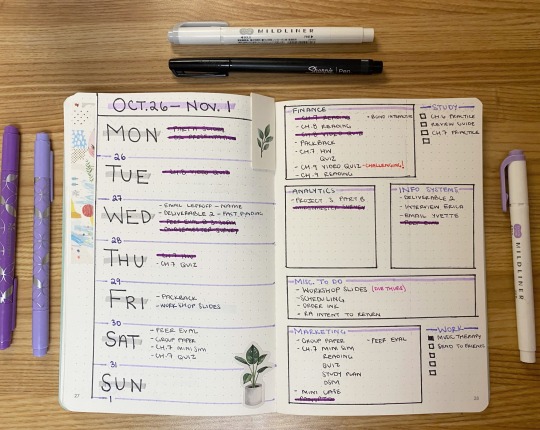 MILDLINER
Sharpie Pen
OCT. 26 - NOV. 1
MON
26
TUE
27
WED
- EMAIL
- DELIVERABLE 2 - FAST FUNDING
28
THU
- CH.7 QUIZ
29
FRI
- PACKBACK
- WORKSHOP SLIDES
30
SAT
- PEER EVAL
- GROUP PAPER
- CH.7 MINI SIM
- CH.7 QUIZ
31
SUN
1
27
FINANCE
- CH.7 READING
- CH.8 READING
- CH.8 VIDEO QUIZ
- PACKBACK
- CH.7 HW
QUIZ
- CH.9 VIDEO QUIZ - CHALLENGING!
- CH.9 READING
STUDY
CH 6 PRACTICE
REVIEW GUIDE
CH.7 PRACTICE
ANALYTICS
- PROJECT 3 PART B
INFO SYSTEMS
- DELIVERABLE 2
- INTERVIEW ERICA
- EMAIL YVETTE
MISC TO DO
- WORKSHOP SLIDES (DUE THURS)
- SCHEDULING
- ORDER INK
- RA INTENT TO RETURN
MARKETING
- GROUP PAPER
- PEER EVAL
- CH.7 MINI SIM
READING
QUIZ
STUDY PLAN
DSM
- MINI CASE
WORK
MUSIC THERAPY
SEND TO FRIENDS
28
MILDLINER